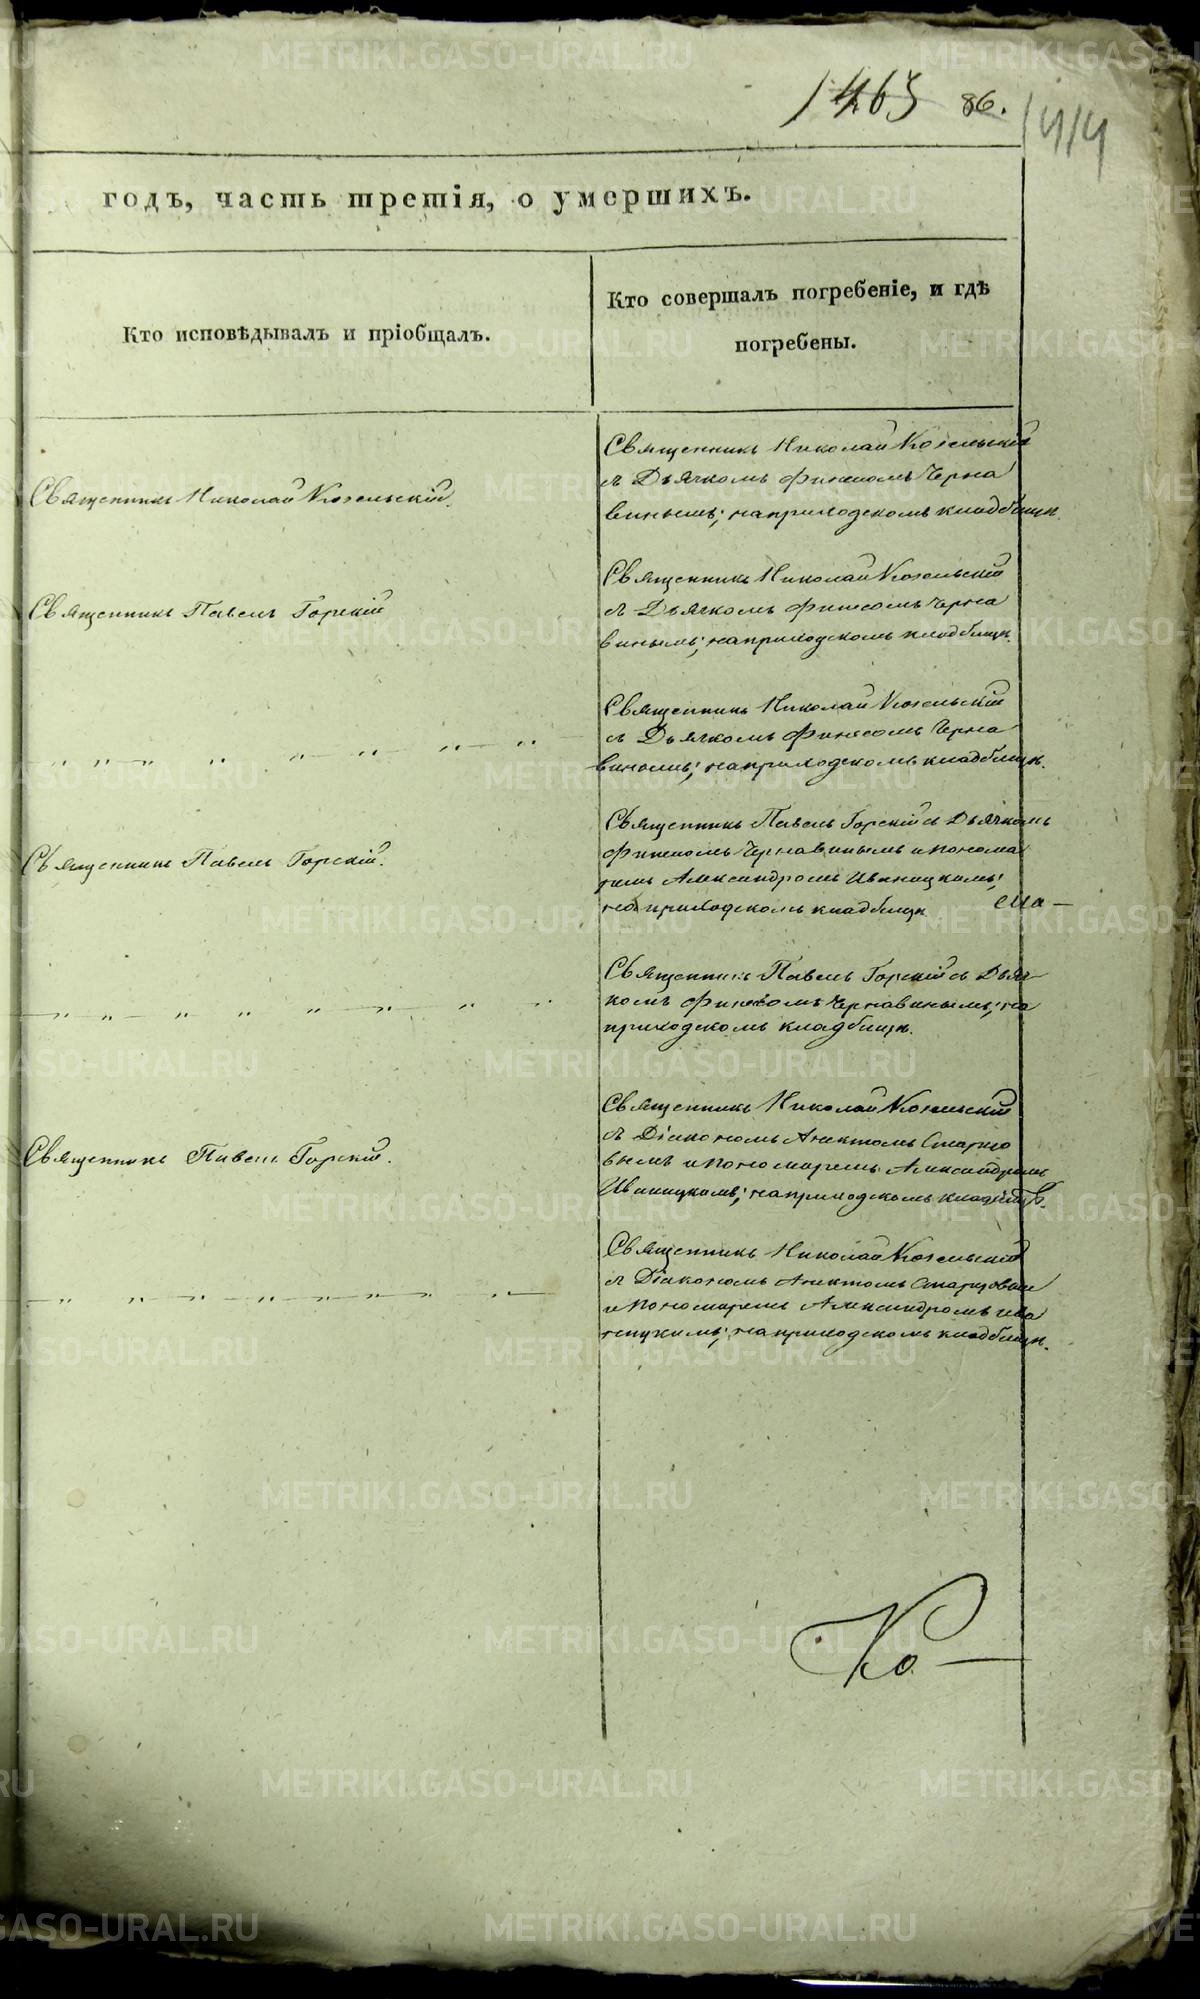 1465 86. 1414
годъ, часть третія, о умершихъ.
Кто исповѣдывалъ и пріобщалъ.
Кто совершалъ погребеніе, и гдѣ
погребены.
Священникъ Николай Козельскій.
Священникъ Николай Козельскій
съ Дьячкомъ Финеесомъ Черна
винымъ; на приходскомъ кладбищѣ.
Священникъ Павелъ Горскій
Священникъ Николай Козельскій
съ Дьячкомъ Финеесомъ Черна
винымъ; на приходскомъ кладбищѣ.
Священникъ Николай Козельскій
съ Дьячкомъ Финеесомъ Черна
винымъ; на приходскомъ кладбищѣ.
Священникъ Павелъ Горскій.
Священникъ Павелъ Горскій съ Дьячкомъ
Финеесомъ Чернавинымъ и понома
ремъ Александромъ Иваницкимъ;
на приходскомъ кладбищѣ
Священникъ Павелъ Горскій съ Дьяч-
комъ Финеесомъ Чернавинымъ; на
приходскомъ кладбищѣ.
Священникъ Павелъ Горскій.
Священникъ Николай Козельскій
съ Діакономъ Аниктомъ Старцо
вымъ и пономаремъ Александромъ
Иваницкимъ; на приходскомъ кладбищѣ.
Священникъ Николай Козельскій
съ Діакономъ Аниктомъ Старцовымъ
и пономаремъ Александромъ Ива
ницкимъ; на приходскомъ кладбищѣ.
Ко—
METRIKI.GASO-URAL.RU